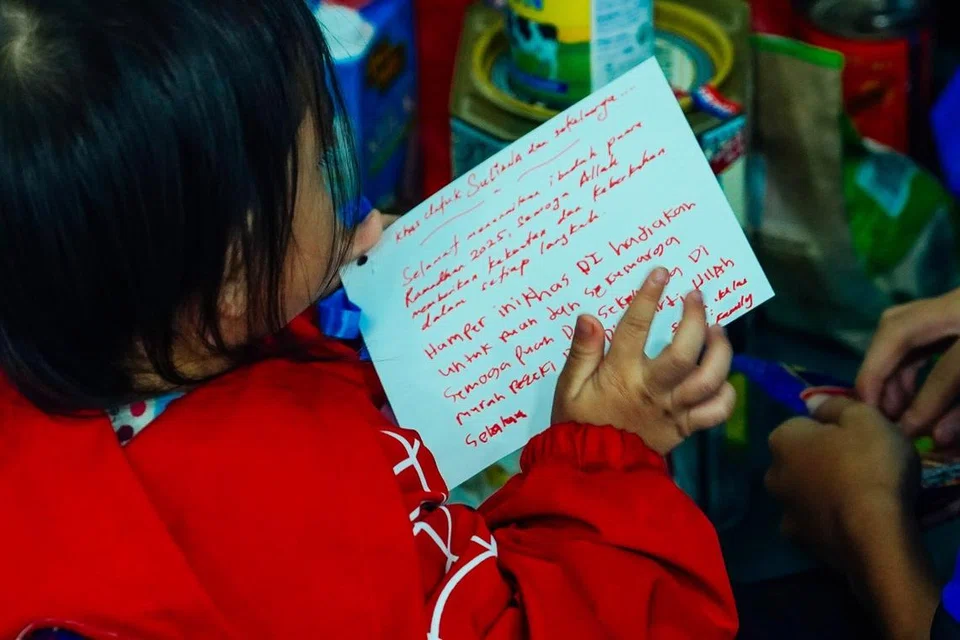 Khas untuk SULIANA dan sekeluarga...
Selamat menunaikan ibadah puasa
Ramadhan 2025. Semoga Allah
memberikan kekuatan dan keberkahan
dalam setiap langkah.
Hamper ini khas DI hadiahkan
untuk puan dan sekeluarga
Semoga puan DI DI
murah rezeki
Sekalian